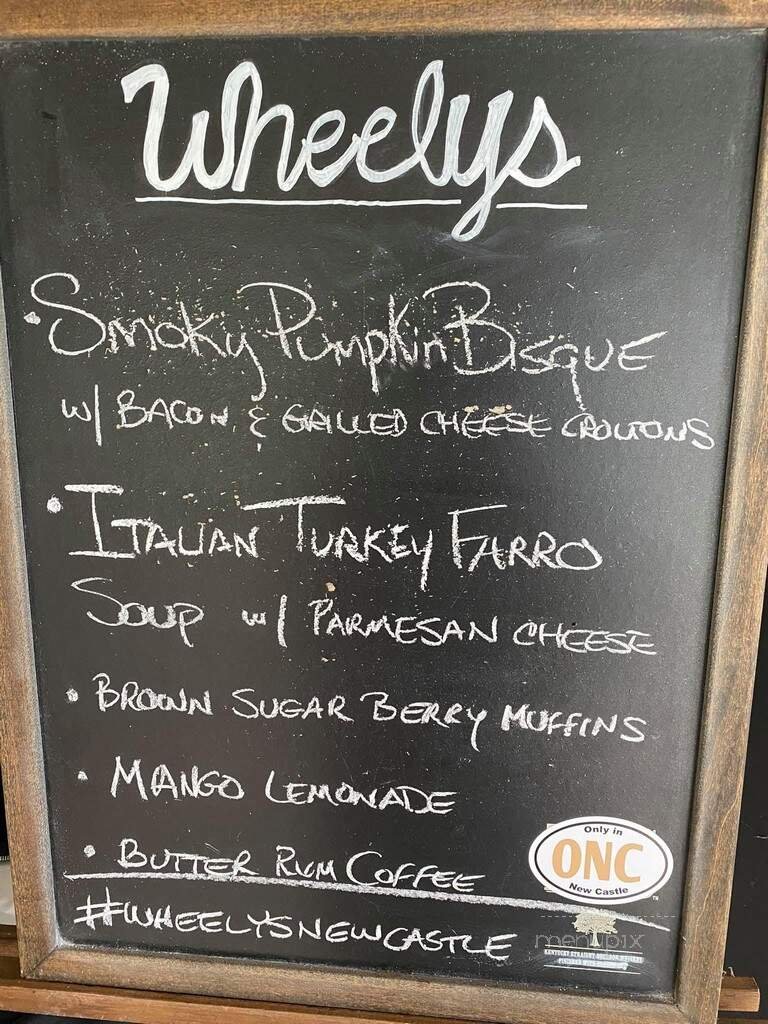 Wheelys
• Smoky Pumpkin Bisque
w/ BACON & GRILLED CHEESE CROUTONS
• ITALIAN TURKEY FARRO
SOUP w/ PARMESAN CHEESE
• BROWN SUGAR BERRY MUFFINS
• MANGO LEMONADE
• BUTTER RUM COFFEE
#WHEELYSNEWCASTLE
Only in
ONC
New Castle
TM
menupix
KENTUCKY STRAIGHT BOURBON WHISKEY